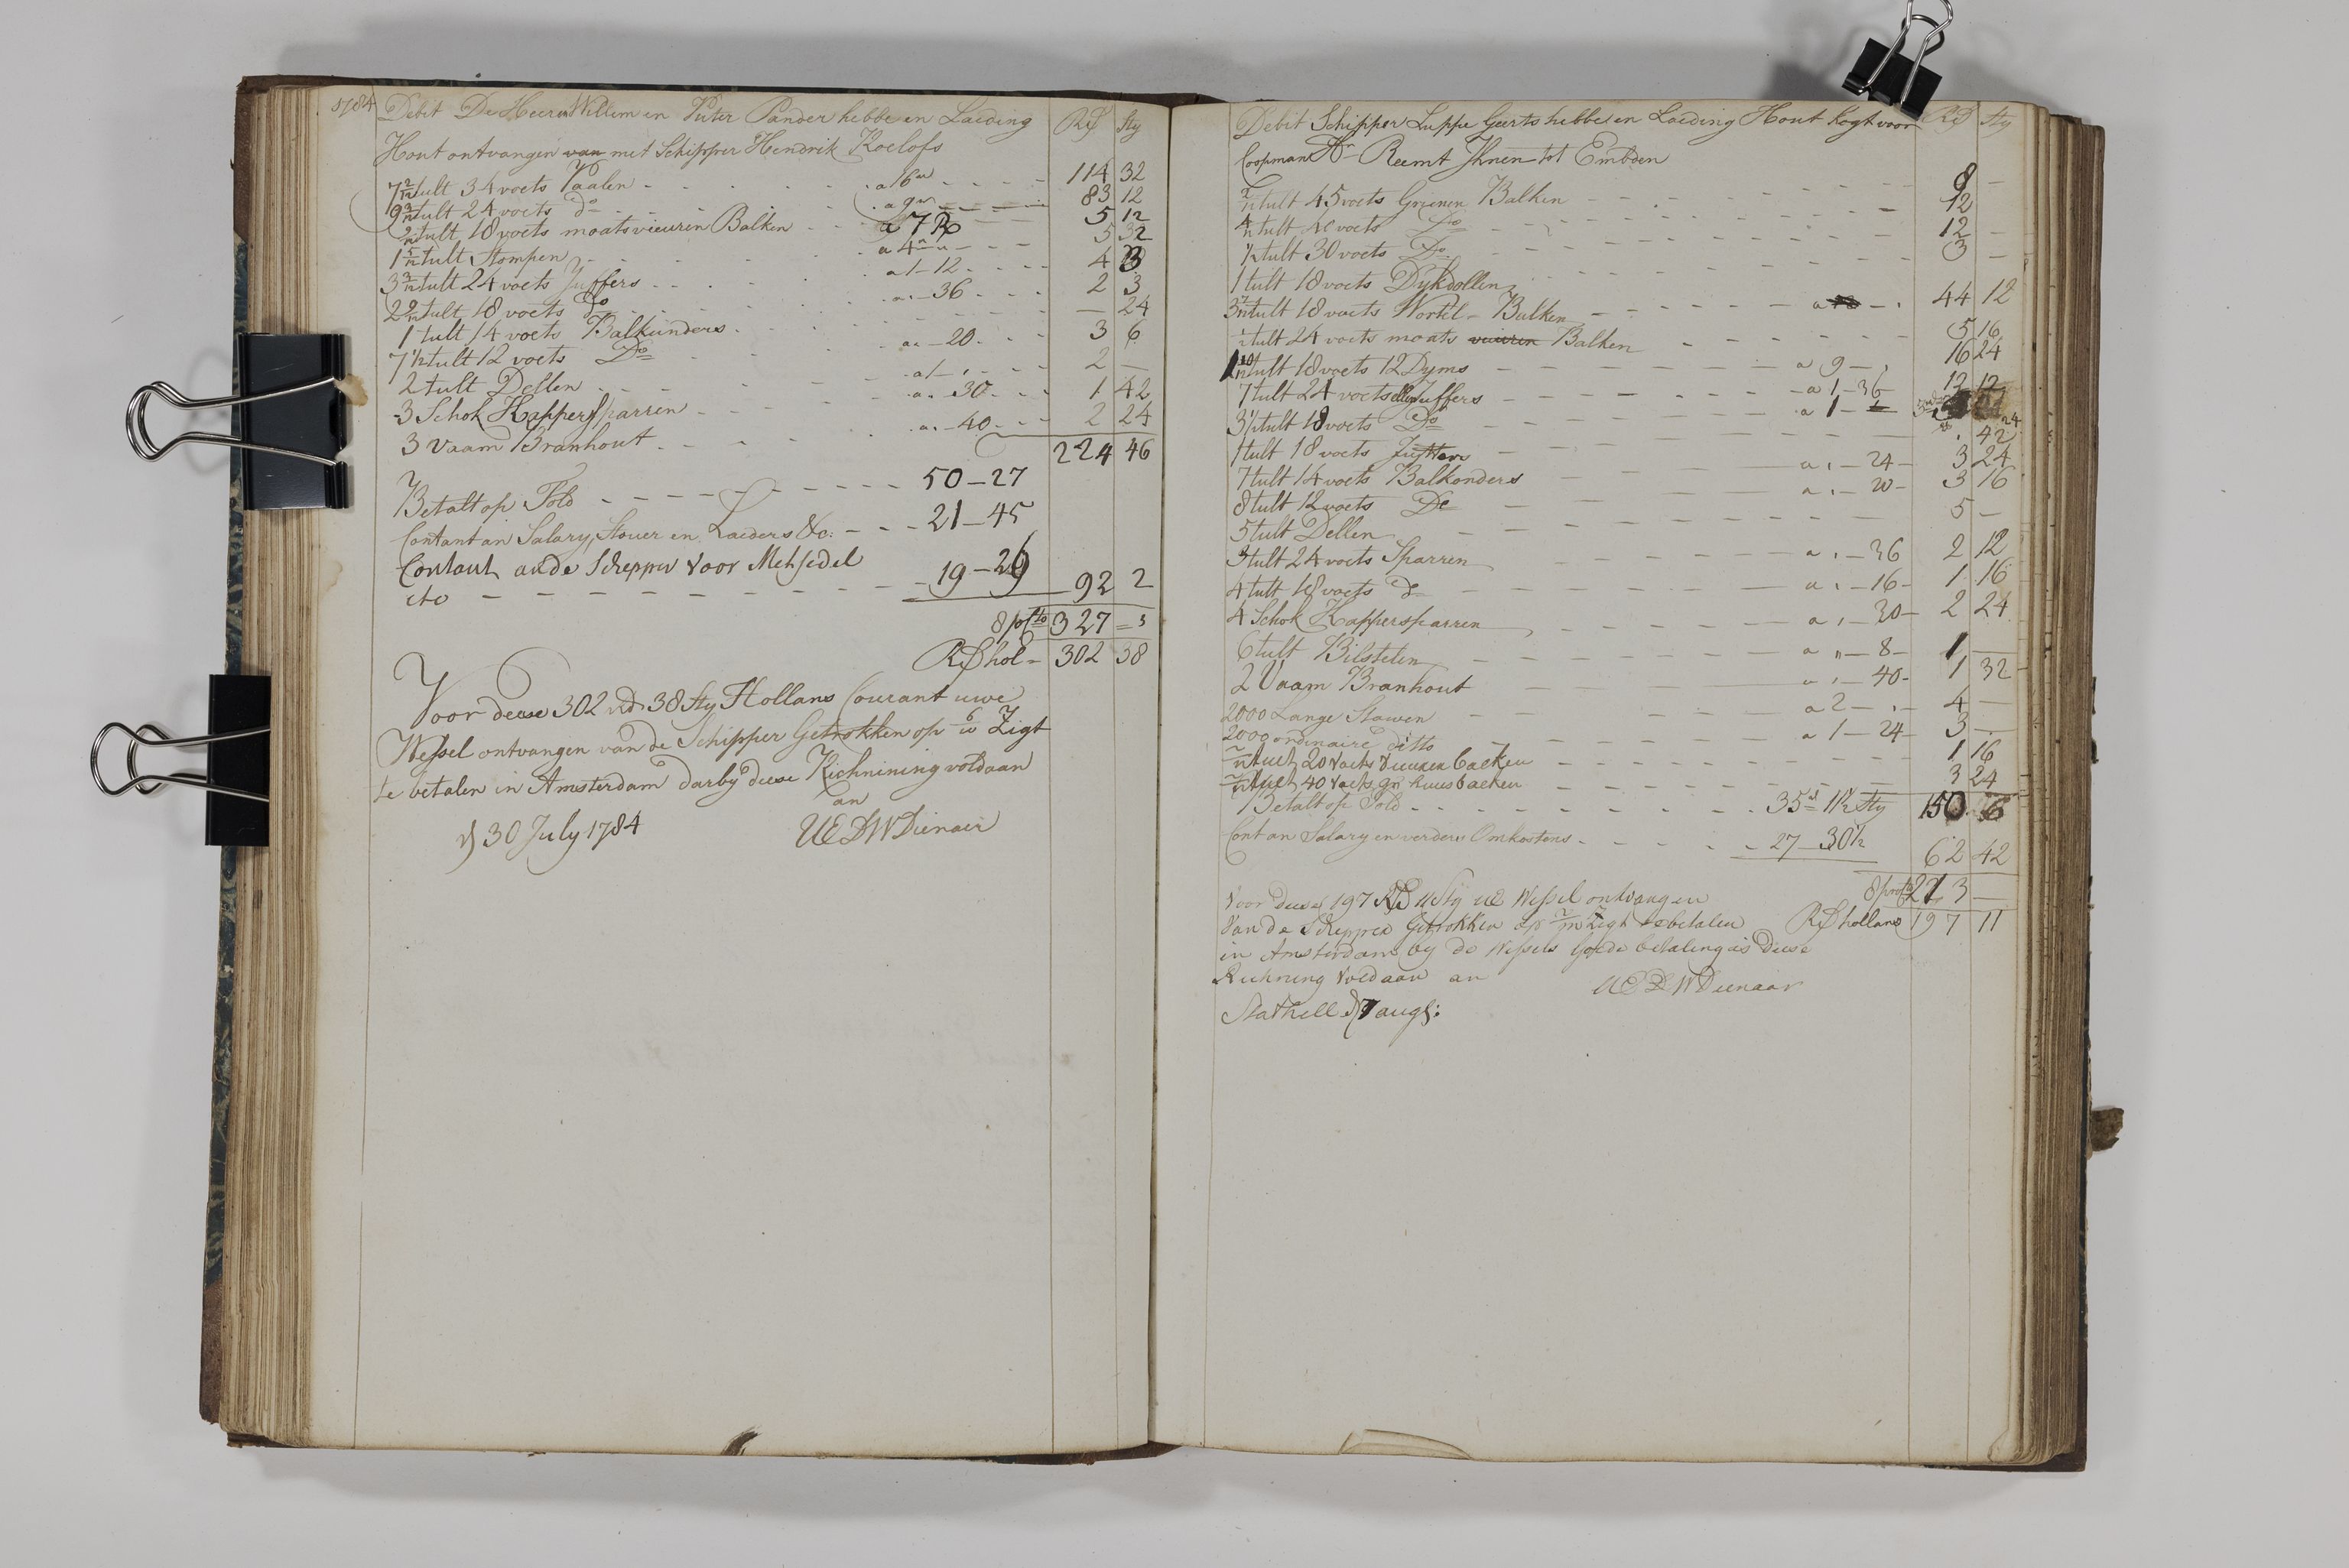 1784 Debit De Heeren Willem en Pieter Pander hebbe en Laeding Rd Sty
Hout ontvangen van met Schipper Hendrik Roelofs
7 2/12 tult 34 voets Paalen a 16 114 32
9 3/12 tult 24 voets do a 9 83 12
9/12 tult 18 voets moats vieuren Balken a 7 Rd 5 12
1 5/12 tult Stompen a 4 5 32
3 3/12 tult 24 voets Juffers a 1-12 4 3
2 9/12 tult 18 voets do a -36 2 3
1 tult 14 voets Balkunders — 24
7 1/2 tult 12 voets Do a -20 3 6
2 tult Dellen a 1 2 —
3 Schok Kappersparren a -30 1 42
3 Vaam Branhout a -40 2 24
224 46
Betalt op Told 50-27
Contant an Salary, Stouer en Laeders &c. 21-45
Contant ande Schepper voor Metsedel
etc 19-26 92 2
8 pcto 327 = 3
Rd hol 302 38
Voor deese 302 rd 38 Sty Hollans Courant uwe
Wessel ontvangen van de Schipper Getrokken op Zigt
te betalen in Amsterdam darby deese Richnining voldaan
an
d 30 July 1784 UEDWDienair
Debit Schipper Luppe Geerts hebbe en Laeding Hout kogt voor Rd Sty
Coopman Hr Reemt Ihnen tot Embden
2/12 tult 45 voets Grienen Balken 8 —
4/12 tult 40 voets Do 12
1/2 tult 30 voets Do 12 —
1 tult 18 voets Dykdollen 3 —
tult 18 voets Wortel-Balken a 44 12
tult 24 voets moats vieuren Balken 5 16
1 10/12 tult 18 voets 12 Dyms a 9 16 24
7 tult 24 voets Juffers a 1-36 12 12
3 1/2 tult 18 voets Do a 1 24
1 tult 18 voets Juffers 42
7 tult 14 voets Balkonders a -24 3 24
8 tult 12 voets Do a -20 3 16
5 tult Dellen 5 —
3 tult 24 voets Sparren a -36 2 12
4 tult 18 voets d a -16 1 16
4 Schok Kappersparren a -30 2 24
6 tult Bilstelen a -8 1 —
2 Vaam Branhout a -40 1 32
2000 Lange Stawen a 2 4 —
2000 ordinaire ditto a 1-24 3 —
2/12 tult 20 voets vieuren balken 1 16
tult 40 voets gr huus balken 3 24
Betalt op Told 35 11 1/2 Sty 150 6
Cont an Salary en verdere Omkostens 27-30 1/2 62 42
Voor deese 197 Rd 11 Sty uE Wessel ontvangen 8 prcto 213 —
Van de Schepper Getrokken op Zigt te betalen Rd hollans 197 11
in Amsterdam by de Wessels Goede betaling is deese
Richning Voldaan an UEDWDienaar
Stathell d 7 augs: